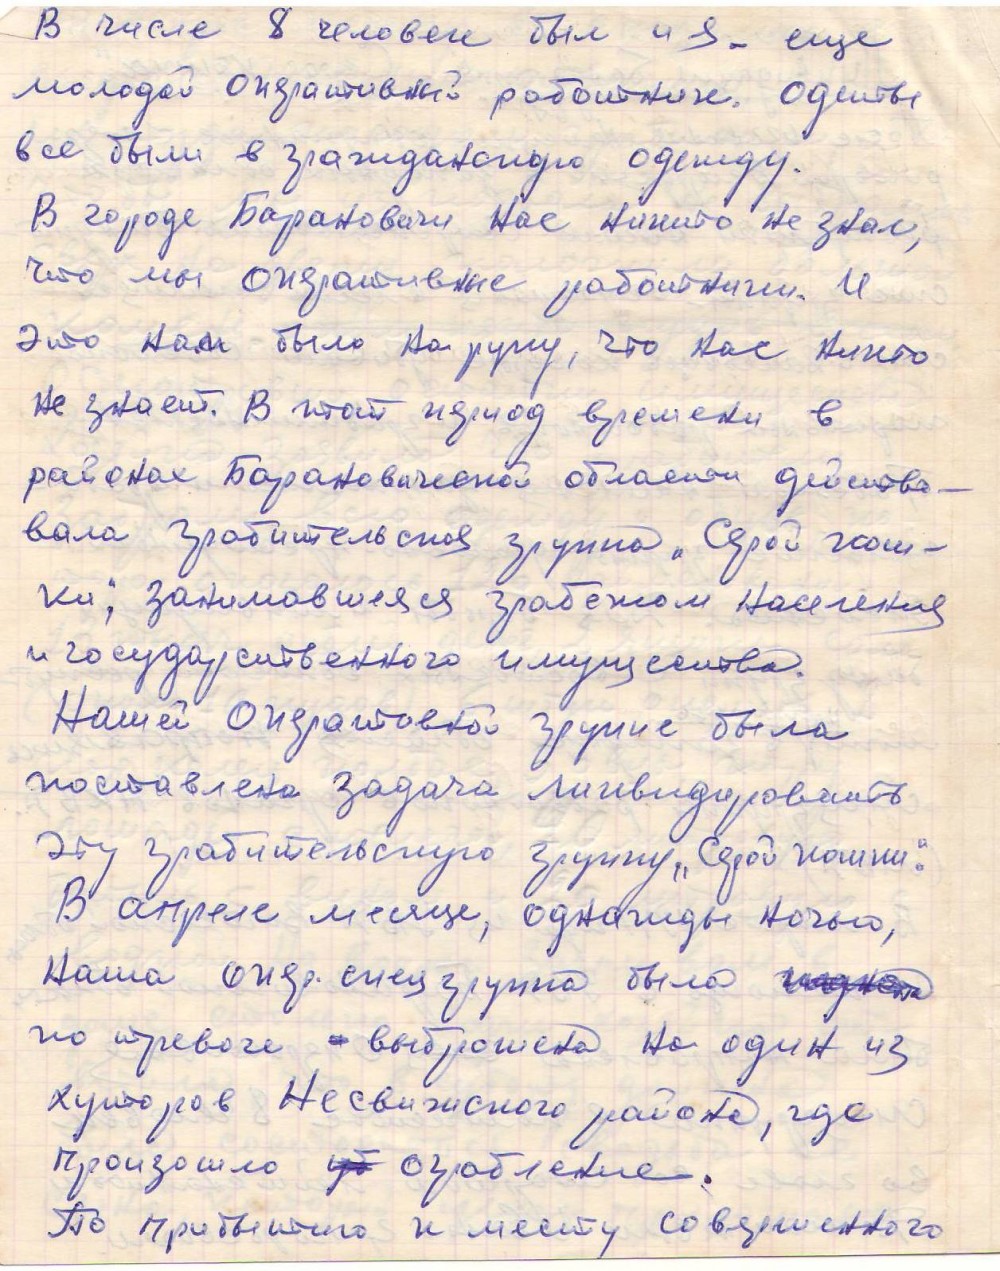 В числе 8 человек был и я - еще
молодой оперативный работник. Одеты
все были в гражданскую одежду.
В городе Барановичи нас никто не знал,
что мы оперативные работники. И
это нам было на руку, что нас никто
не знает. В этот период времени в
районах Барановической области действо-
вала грабительская группа „Серой кош-
ки", занимавшееся грабежом населения
и государственного имущества.
Нашей оперативной группе была
поставлена задача ликвидировать
эту грабительскую группу „Серой кошки".
В апреле месяце, однажды ночью,
наша опер. спец группа была
по тревоге - выброшена на один из
хуторов Несвижского района, где
произошло ограбление.
По прибытию к месту совершенного